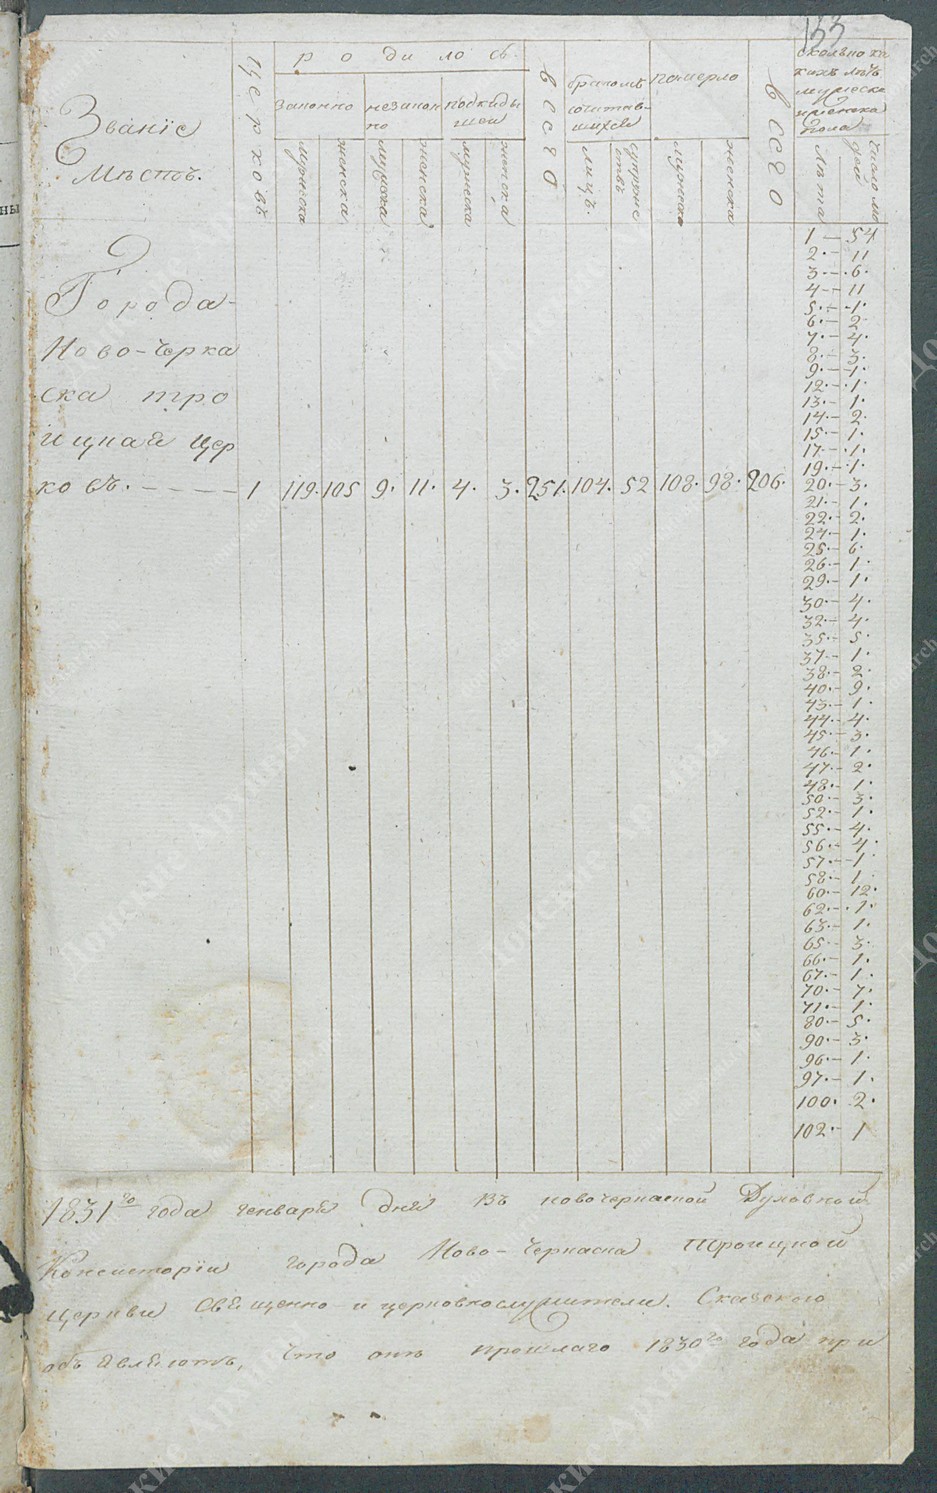 133
Званїе
Мѣстъ.
Церковь
родилось
законно
незаконно
подкидышей
мужеска
женска
мужска
женска
мужеска
женска
всего
бракомъ сочитавшихся
лицъ.
супружествъ
померло
мужеска
женска
всего
сколько ка
кихъ лѣтъ
мужеска
пола
Лѣта
число людей
Города
Ново-Черка
ска тро
ицкая цер
ковъ. 1 119. 105 9. 11. 4. 3. 251. 104. 52 108. 98. 206.
1 — 54
2 — 11
3 — 6.
4 — 11
5. — 1.
6. — 2
7. — 4.
8. — 3.
9. — 1.
12. — 1.
13. — 1.
14. — 2.
15. — 1.
17. — 1.
19. — 1.
20. — 3.
21. — 1.
22. — 2.
24. — 1.
25. — 6.
26. — 1.
29. — 1.
30. — 4.
32. — 4.
35. — 5.
37. — 1.
38. — 2.
40. — 9.
43. — 1.
44. — 4.
45. — 3.
46. — 1.
47. — 2.
48. — 1.
50. — 3.
52. — 1.
55. — 4.
56. — 4.
57. — 1
58. — 1
60. — 12.
62. — 1.
63. — 1.
65 — 3.
66. — 1.
67. — 1.
70. — 7.
71. — 1.
80. — 5.
90. — 3.
96. — 1.
97. — 1.
100. 2.
102. — 1
1831го года генваря дня Въ новочеркаской Духовной
Консисторїи города Ново-Черкаска Троицкой
церкви Священно и церковнослужители. Сказкою
объявляютъ, что отъ прошлаго 1830го года при
Донские Архивы